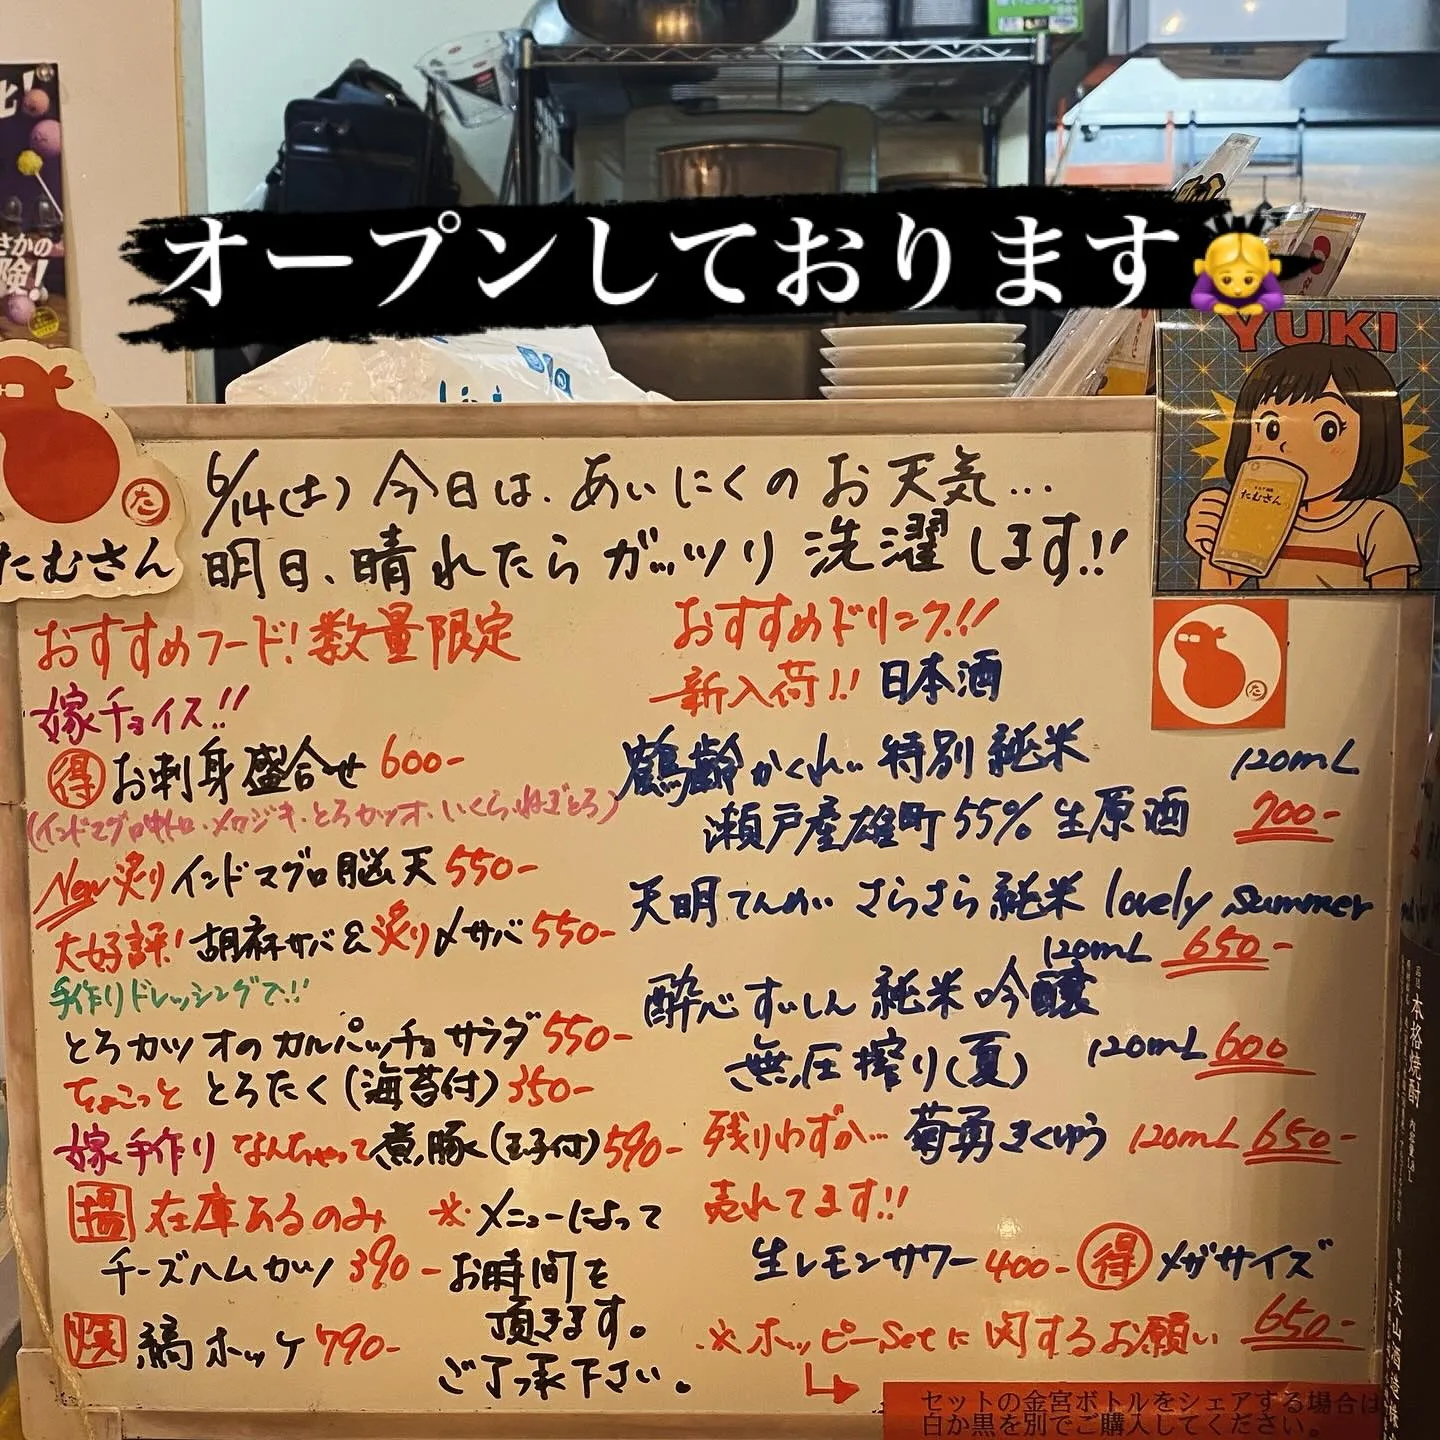 オープンしております🙇‍♀️
さかの
険!
YUKI
たむさん
た
たむさん
6/14(土) 今日は、あいにくのお天気…
明日、晴れたらガッツリ洗濯します!!
おすすめフード!数量限定
嫁チョイス!!
得 お刺身盛合せ 600-
(インドマグロ中トロ・メカジキ・とろカツオ・いくら・ねぎとろ)
New 炙りインドマグロ脳天 550-
大好評! 胡麻サバ&炙り〆サバ 550-
手作りドレッシングで!!
とろカツオのカルパッチョサラダ 550-
ちょこっと とろたく(海苔付) 350-
嫁手作り なんちゃって煮豚(玉子付) 590-
揚 在庫あるのみ
チーズハムカツ 390-
焼 縞ホッケ 790-
※メニューによって
お時間を
頂きます。
ご了承下さい。
おすすめドリンク!!
新入荷!! 日本酒
鶴齢 かくれい 特別純米 120mL
瀬戸産雄町55% 生原酒 700-
天明 てんめい さらさら純米 lovely summer
120mL 650-
酔心 すいしん 純米吟醸
無圧搾り(夏) 120mL 600
残りわずか… 菊勇 きくゆう 120mL 650-
売れてます!!
生レモンサワー 400- 得 メガサイズ
650-
※ホッピーsetに関するお願い
セットの金宮ボトルをシェアする場合は
白か黒を別でご購入してください。
本格焼酎